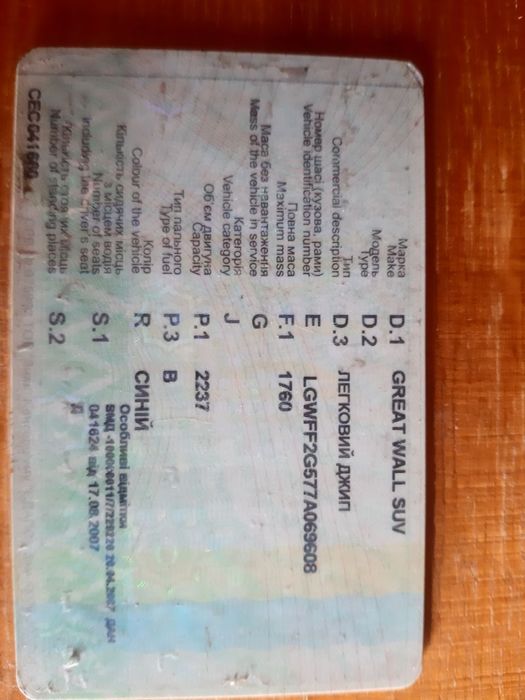 Марка D.1 GREAT WALL SUV
Make
Модель D.2
Type
Тип D.3 ЛЕГКОВИЙ ДЖИП
Commercial description
Номер шасі (кузова, рами) E LGWFF2G577A069608
Vehicle identification number
Повна маса F.1 1760
Maximum mass
Маса без навантаження G
Mass of the vehicle in service
Категорія J
Vehicle category
Об'єм двигуна P.1 2237
Capacity
Тип пального P.3 B
Type of fuel
Колір R СИНІЙ
Colour of the vehicle
Кількість сидячих місць S.1
з місцем водія
Number of seats
including the driver's seat
Кількість стоячих місць S.2
Number of standing places
Особливі відмітки
041624 від 17.08.2007